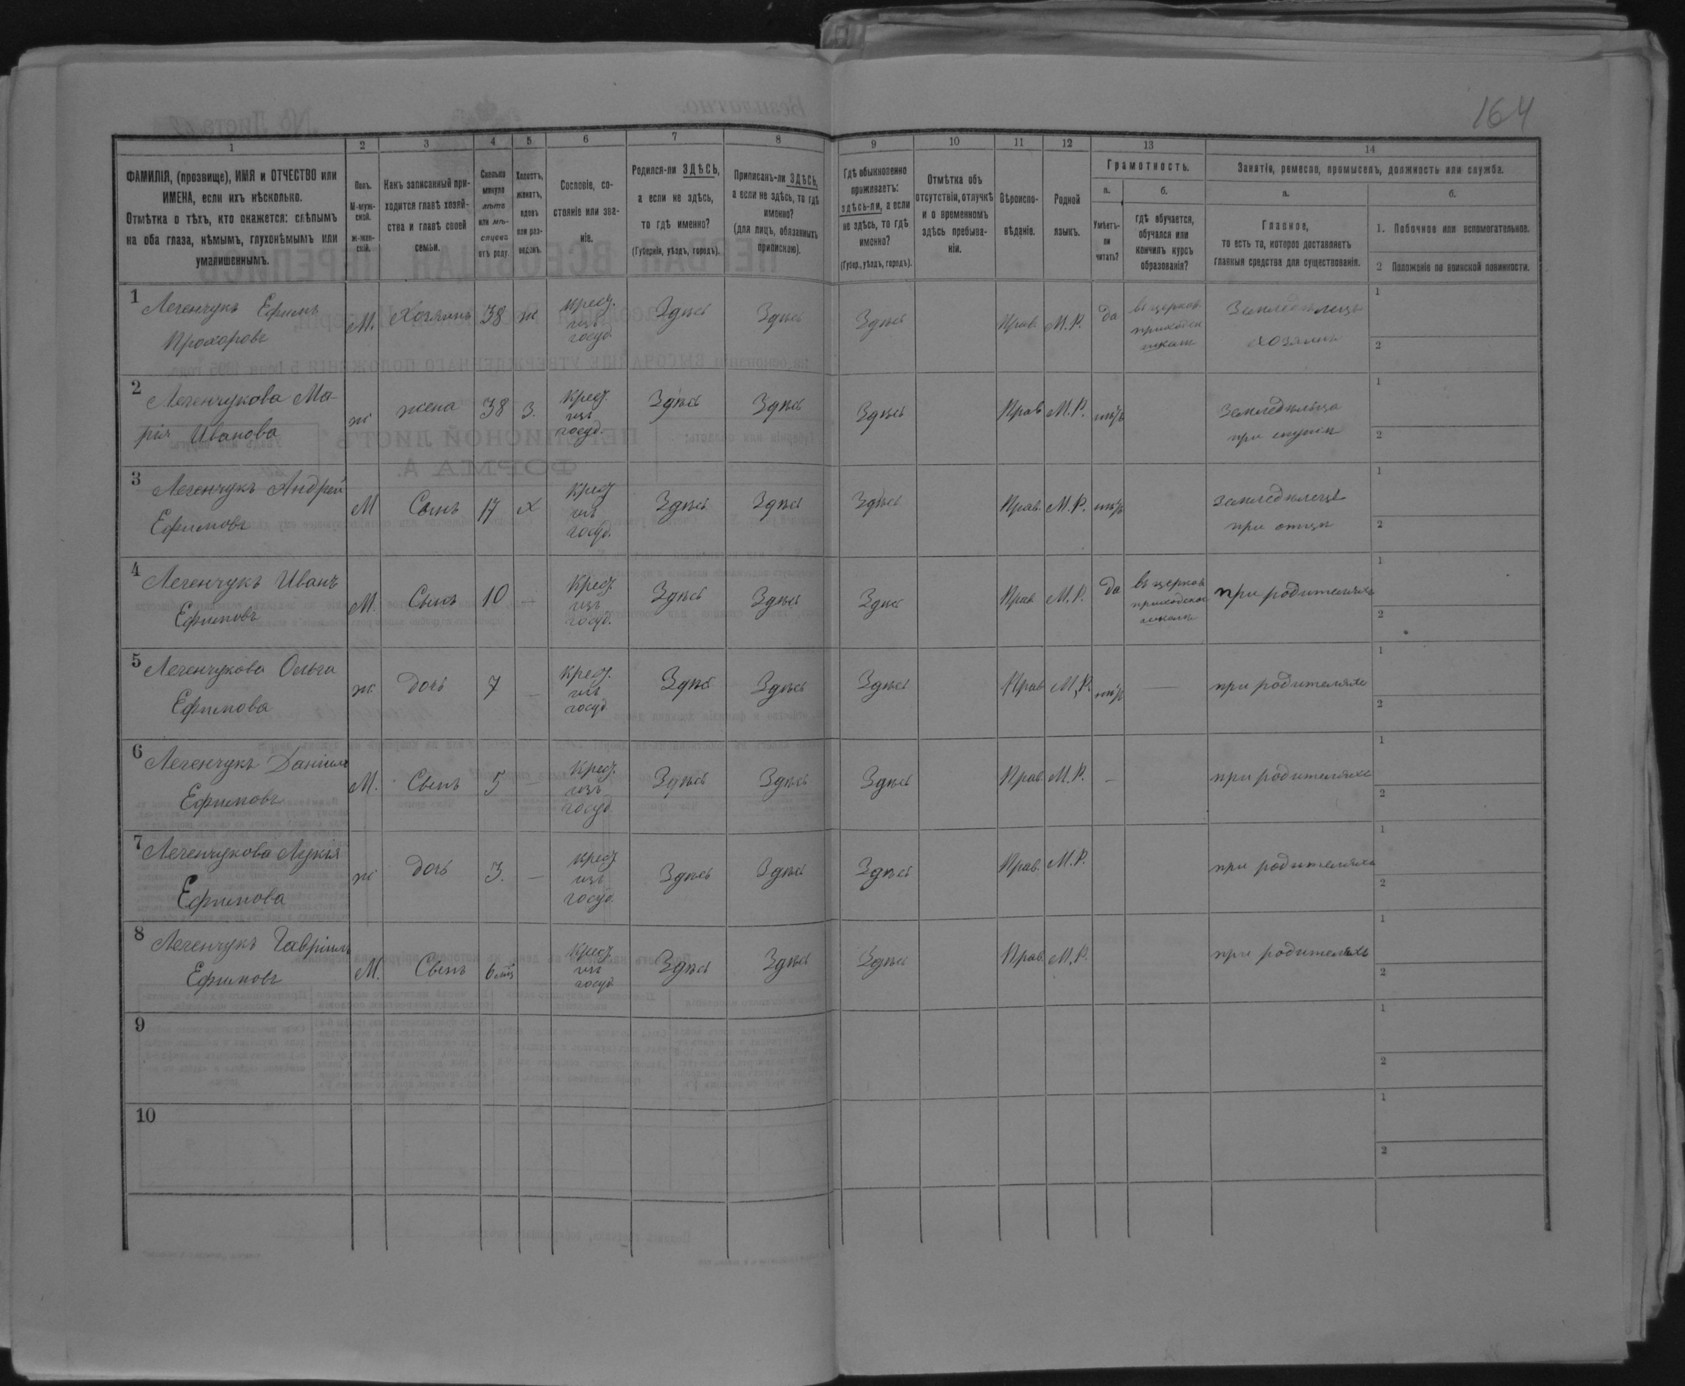 164
1 2 3 4 5 6 7 8 9 10 11 12 13 14
ФАМИЛІЯ, (прозвище), ИМЯ и ОТЧЕСТВО или
ИМЕНА, если ихъ нѣсколько.
Отмѣтка о тѣхъ, кто окажется: слѣпымъ
на оба глаза, нѣмымъ, глухонѣмымъ или
умалишеннымъ.
Полъ.
М-муж-
ской.
Ж-жен-
скій.
Какъ записанный при-
ходится главѣ хозяй-
ства и главѣ своей
семьи.
Сколько
минуло
лѣтъ
или мѣ-
сяцевъ
отъ роду.
Холостъ,
женатъ,
вдовъ
или раз-
веденъ.
Сословіе, со-
стояніе или зва-
ніе.
Родился-ли ЗДѢСЬ,
а если не здѣсь,
то гдѣ именно?
(Губернія, уѣздъ, городъ).
Приписанъ-ли ЗДѢСЬ,
а если не здѣсь, то гдѣ
именно?
(для лицъ, обязанныхъ
припискою).
Гдѣ обыкновенно
проживаетъ:
здѣсь-ли, а если
не здѣсь, то гдѣ
именно?
(Губер., уѣздъ, городъ).
Отмѣтка объ
отсутствіи, отлучкѣ
и о временномъ
здѣсь пребыва-
ніи.
Вѣроиспо-
вѣданіе.
Родной
языкъ.
Грамотность.
а.
Умѣетъ-
ли
читать?
б.
гдѣ обучается,
обучался или
кончилъ курсъ
образованія?
Занятіе, ремесло, промыселъ, должность или служба.
а.
Главное,
то есть то, которое доставляетъ
главныя средства для существованія.
б.
1. Побочное или вспомогательное.
2 Положеніе по воинской повинности.
1 Легенчукъ Ефимъ
Прохоровъ
М. Хозяинъ 38 ж
Крест.
изъ
госуд.
Здѣсь Здѣсь Здѣсь Прав. М.Р. да
въ церков
приходск
школѣ
Земледѣлецъ
хозяинъ
1
2
2 Легенчукова Ма-
рія Иванова
ж жена 38 З.
Крест.
изъ
госуд.
Здѣсь Здѣсь Здѣсь Прав М.Р. нѣтъ
Земледѣлица
при мужѣ
1
2
3 Легенчукъ Андрей
Ефимовъ
М Сынъ 17 х
Крест
изъ
госуд.
Здѣсь Здѣсь Здѣсь Прав. М.Р. нѣтъ
Земледѣлецъ
при отцѣ
1
2
4 Легенчукъ Иванъ
Ефимовъ
М. Сынъ 10 —
Крест
изъ
госуд.
Здѣсь Здѣсь Здѣсь Прав М.Р. да
въ церков
приходской
школѣ
при родителяхъ
1
2
5 Легенчукова Ольга
Ефимова
ж. дочь 7 —
Крест.
изъ
госуд
Здѣсь Здѣсь Здѣсь Прав М.Р. нѣтъ —
при родителяхъ
1
2
6 Легенчукъ Даніилъ
Ефимовъ
М. Сынъ 5 —
Крест.
изъ
госуд
Здѣсь Здѣсь Здѣсь Прав. М.Р. —
при родителяхъ
1
2
7 Легенчукова Лукія
Ефимова
ж дочь 3. —
Крест
изъ
госуд
Здѣсь Здѣсь Здѣсь Прав. М.Р.
при родителяхъ
1
2
8 Легенчукъ Гавріилъ
Ефимовъ
М. Сынъ 6 мѣс
Крест.
изъ
госуд
Здѣсь Здѣсь Здѣсь Прав. М.Р.
при родителяхъ
1
2
9
1
2
10
1
2